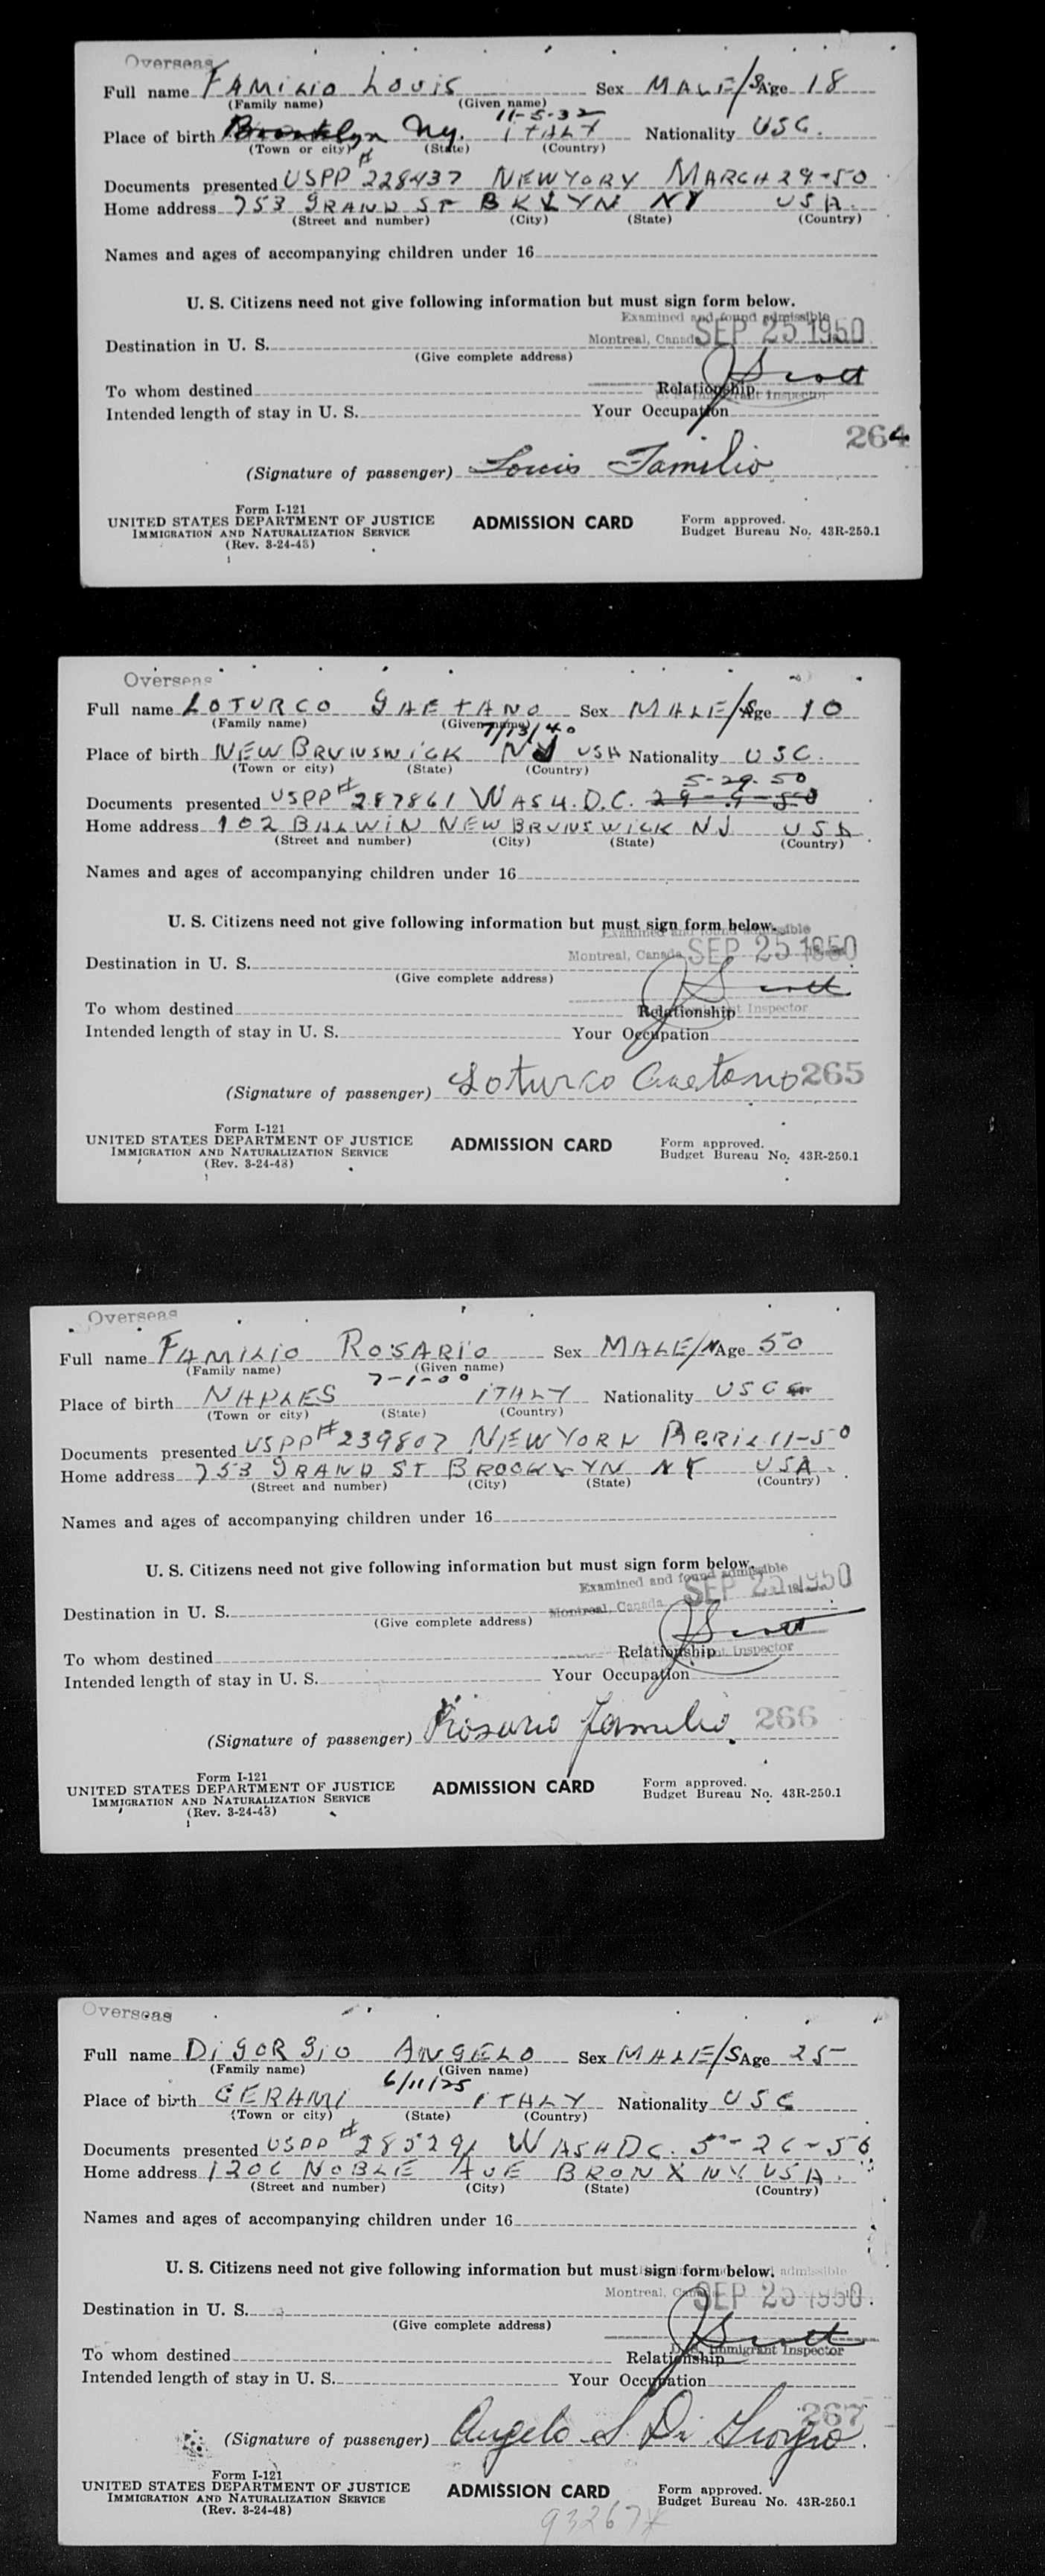 Overseas
Full name FAMILIO LOUIS Sex MALE/S Age 18
(Family name) (Given name)
11-5-32
Place of birth Brooklyn Ny. ITALY Nationality USC.
(Town or city) (State) (Country)
Documents presented USPP # 228437 NEWYORY MARCH 29-50
Home address 753 GRAND ST BKLYN NY USA.
(Street and number) (City) (State) (Country)
Names and ages of accompanying children under 16
U. S. Citizens need not give following information but must sign form below.
Examined and found admissible
Montreal, Canada SEP 25 1950
Destination in U. S.
(Give complete address)
J Scott
To whom destined Relationship
U. S. Immigrant Inspector
Intended length of stay in U. S. Your Occupation
264
(Signature of passenger) Louis Familio
Form I-121
UNITED STATES DEPARTMENT OF JUSTICE ADMISSION CARD Form approved.
IMMIGRATION AND NATURALIZATION SERVICE Budget Bureau No. 43R-250.1
(Rev. 3-24-48)
Overseas
Full name LOTURCO GAETANO Sex MALE/S Age 10
(Family name) (Given name)
7/13/40
Place of birth NEW BRUNSWICK NJ USA Nationality USC.
(Town or city) (State) (Country)
5-29-50
Documents presented USPP # 287861 WASH. D.C. 29-9-50
Home address 102 BALWIN NEW BRUNSWICK NJ USA
(Street and number) (City) (State) (Country)
Names and ages of accompanying children under 16
U. S. Citizens need not give following information but must sign form below.
Examined and found admissible
Montreal, Canada SEP 25 1950
Destination in U. S.
(Give complete address)
J Scott
To whom destined Relationship
Immigrant Inspector
Intended length of stay in U. S. Your Occupation
(Signature of passenger) Loturco Gaetano 265
Form I-121
UNITED STATES DEPARTMENT OF JUSTICE ADMISSION CARD Form approved.
IMMIGRATION AND NATURALIZATION SERVICE Budget Bureau No. 43R-250.1
(Rev. 3-24-48)
Overseas
Full name FAMILIO ROSARIO Sex MALE/M Age 50
(Family name) (Given name)
7-1-00
Place of birth NAPLES ITALY Nationality USC
(Town or city) (State) (Country)
Documents presented USPP # 239807 NEW YORK APRIL 11-50
Home address 753 GRAND ST BROOKLYN NY USA.
(Street and number) (City) (State) (Country)
Names and ages of accompanying children under 16
U. S. Citizens need not give following information but must sign form below.
Examined and found admissible
Montreal, Canada SEP 25 1950
Destination in U. S.
(Give complete address)
J Scott
To whom destined Relationship
Immigrant Inspector
Intended length of stay in U. S. Your Occupation
(Signature of passenger) Rosario Familio 266
Form I-121
UNITED STATES DEPARTMENT OF JUSTICE ADMISSION CARD Form approved.
IMMIGRATION AND NATURALIZATION SERVICE Budget Bureau No. 43R-250.1
(Rev. 3-24-48)
Overseas
Full name DiGORGIO ANGELO Sex MALE/S Age 25
(Family name) (Given name)
6/11/25
Place of birth CERAMI ITALY Nationality USC
(Town or city) (State) (Country)
Documents presented USPP # 285291 WASH DC. 5-26-50
Home address 1206 NOBLE AVE BRONX NY USA.
(Street and number) (City) (State) (Country)
Names and ages of accompanying children under 16
U. S. Citizens need not give following information but must sign form below.
admissible
Montreal, Canada SEP 25 1950
Destination in U. S.
(Give complete address)
J Scott
U. S. Immigrant Inspector
To whom destined Relationship
Intended length of stay in U. S. Your Occupation
267
(Signature of passenger) Angelo S Di Giorgio.
Form I-121
UNITED STATES DEPARTMENT OF JUSTICE ADMISSION CARD Form approved.
IMMIGRATION AND NATURALIZATION SERVICE Budget Bureau No. 43R-250.1
(Rev. 3-24-48)
93267